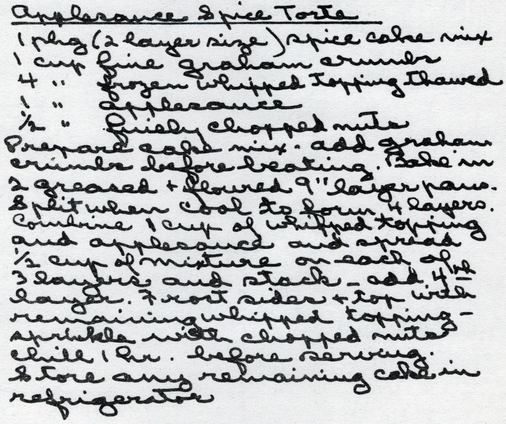 Applesauce Spice Torte
1 pkg (2 layer size) spice cake mix
1 cup fine graham crumbs
4 " frozen whipped topping thawed
1 " applesauce
½ " finely chopped nuts
Prepare cake mix - add graham
crumbs before beating. Bake in
2 greased + floured 9" layer pans.
Split when cool to form 4 layers.
Combine 1 cup of whipped topping
and applesauce and spread
½ cup of mixture on each of
3 layers and stack - add 4th
layer. Frost sides + top with
remaining whipped topping -
sprinkle with chopped nuts
chill 1 hr. before serving.
Store any remaining cake in
refrigerator